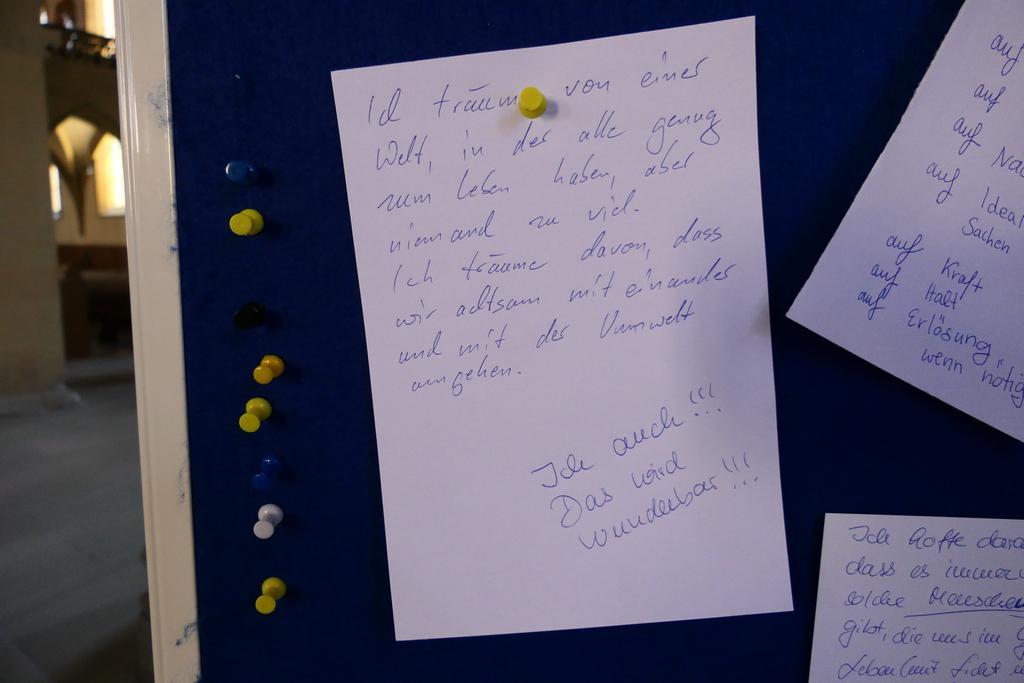 Ich träume von einer
Welt, in der alle genug
zum Leben haben, aber
niemand zu viel.
Ich träume davon, dass
wir achtsam miteinander
und mit der Umwelt
umgehen.
Ich auch!!!
Das wird
wunderbar!!!
auf
auf
auf
auf Ideal
Sachen
auf Kraft
auf Halt
auf Erlösung
wenn nötig
Ich hoffe
dass es immer
solche Menschen
gibt, die uns im
Leben (mit